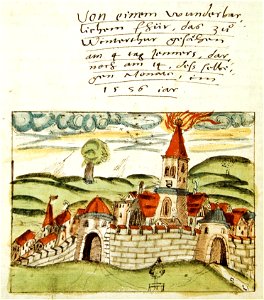 Von einem wunderbar,
lichem fhür, das zů
Winterthur gesehen
am 4 tag Jenners, dar
nach am 14. deß selbi,
gen Monats, im
1556 iar